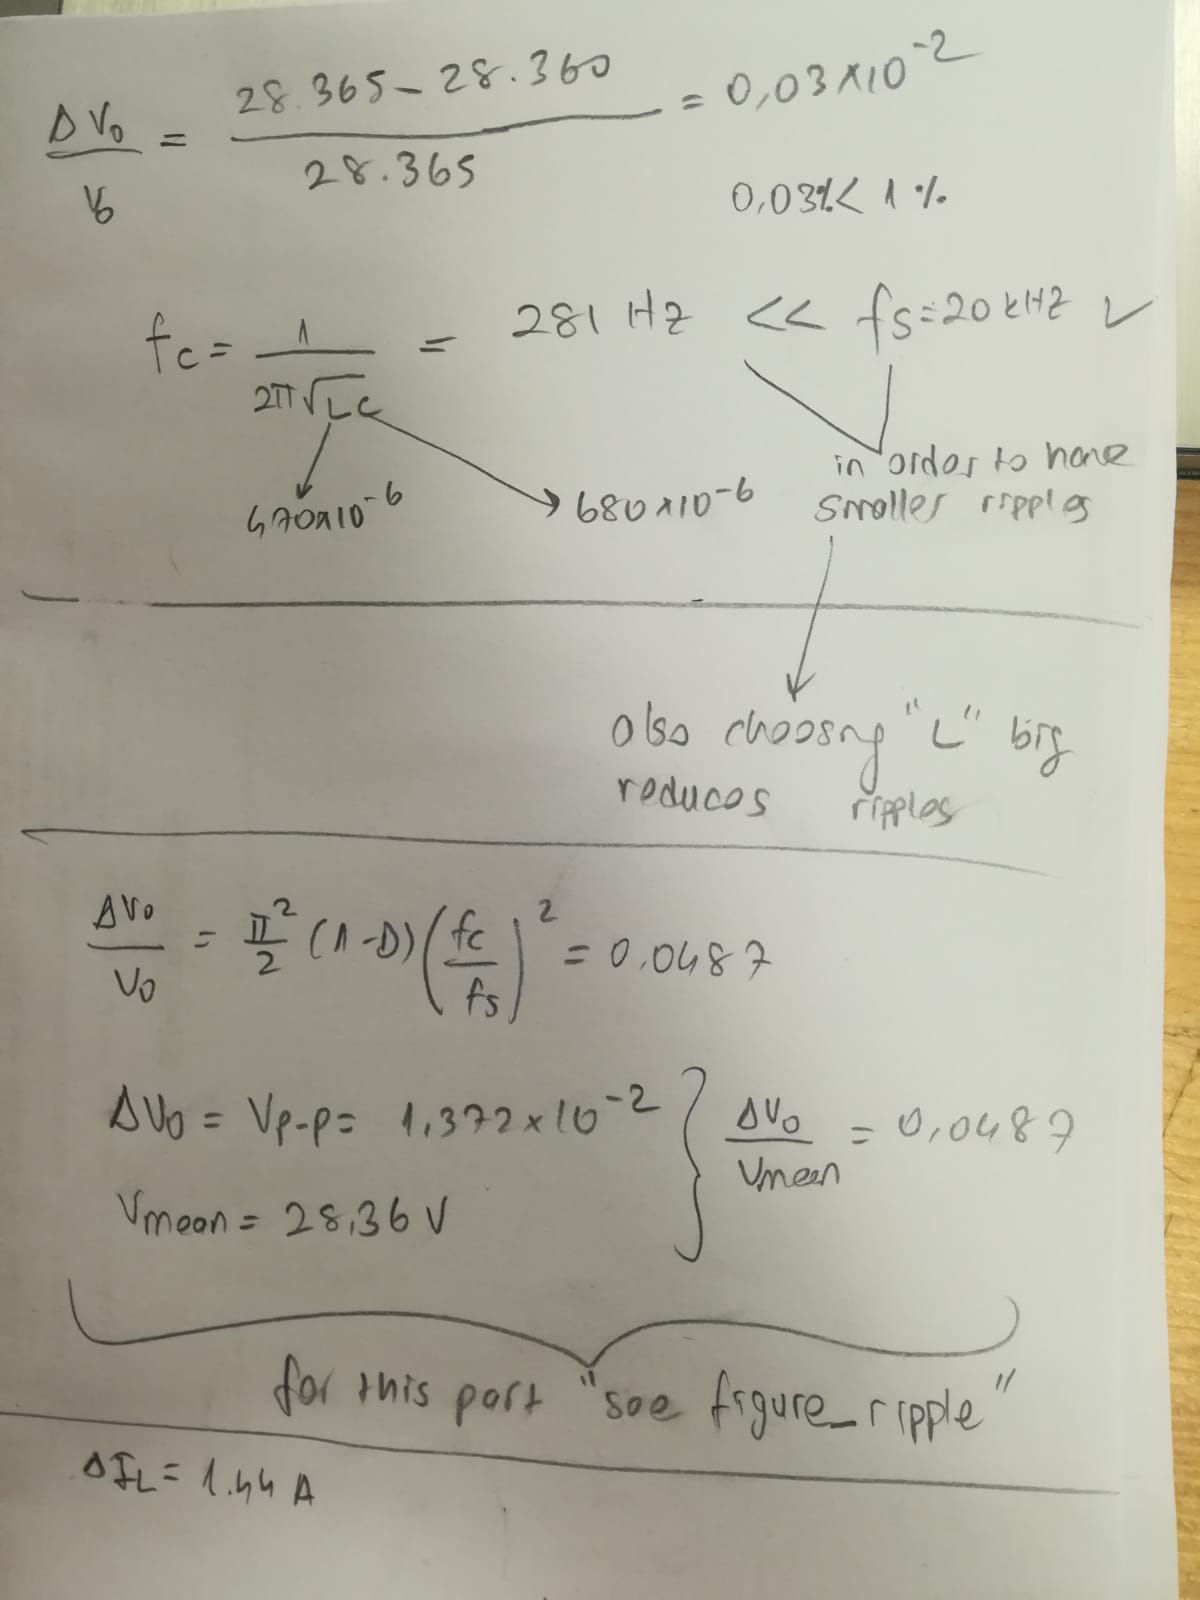 ΔVo/Vo = (28.365 - 28.360)/28.365 = 0,03×10^-2
0,03% < 1 %
fc = 1/(2π√LC) = 281 Hz << fs=20 kHz ✓
470×10^-6
680×10^-6
in order to have
smaller ripples
also choosing "L" big
reduces ripples
ΔVo/Vo = π²/2 (1-D) (fc/fs)² = 0.0487
ΔVo = Vp-p = 1,372×10^-2 } ΔVo/Vmean = 0,0487
Vmean = 28,36 V
for this part "see figure_ripple"
ΔIL = 1.44 A